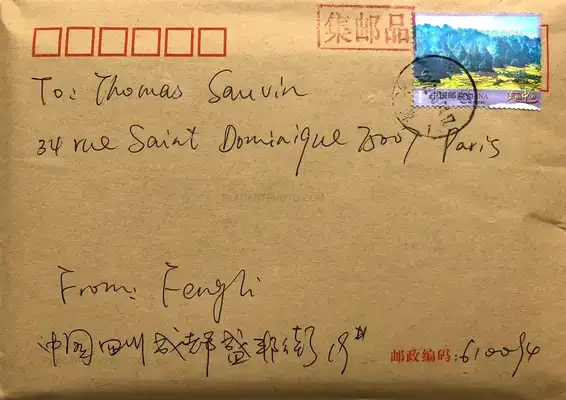 集邮品
中国邮政 CHINA
To: Thomas Sauvin
34 rue Saint Dominique 75007 Paris
From: Fengli
中国四川成都盛邦街
邮政编码: